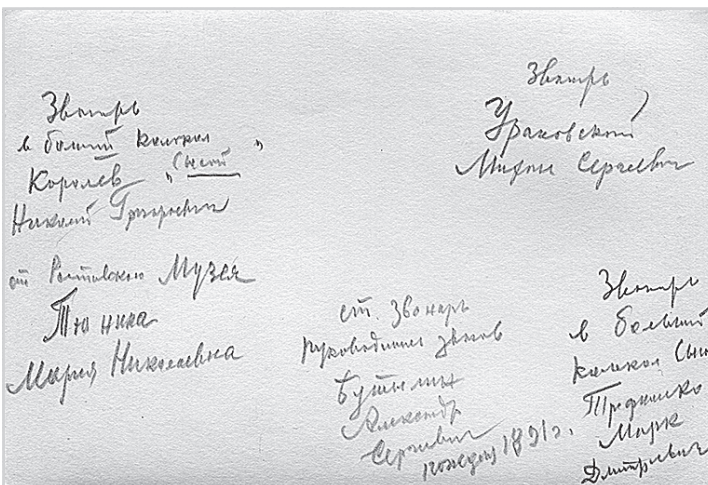 Звонарь
в большой колокол
Королев „Сысой“
Николай Григорьевич
от Ростовского Музея
Тюнина
Мария Николаевна
Звонарь
Ураковский
Михаил Сергеевич
ст. Звонарь
руководитель звонов
Бутылин
Александр
Сергеевич
рождения 1891 г.
Звонарь
в большой
колокол Сысо
Трофименко
Марк
Дмитриевич